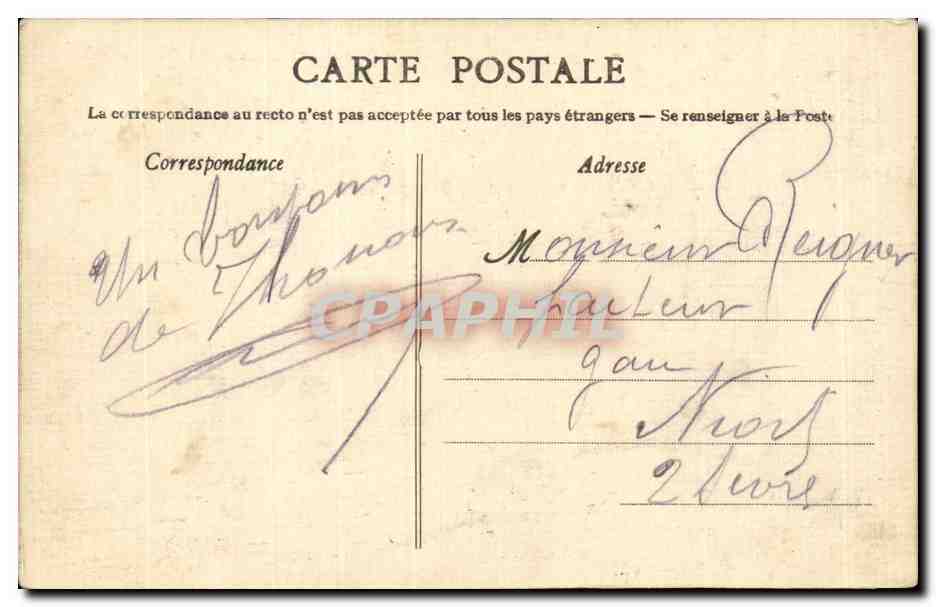 CARTE POSTALE
La correspondance au recto n'est pas acceptée par tous les pays étrangers — Se renseigner à la Poste
Correspondance
Un bonjour
de Thouars
Adresse
Monsieur Reigner
facteur
gare
Niort
2 Sevres
CPAPHIL